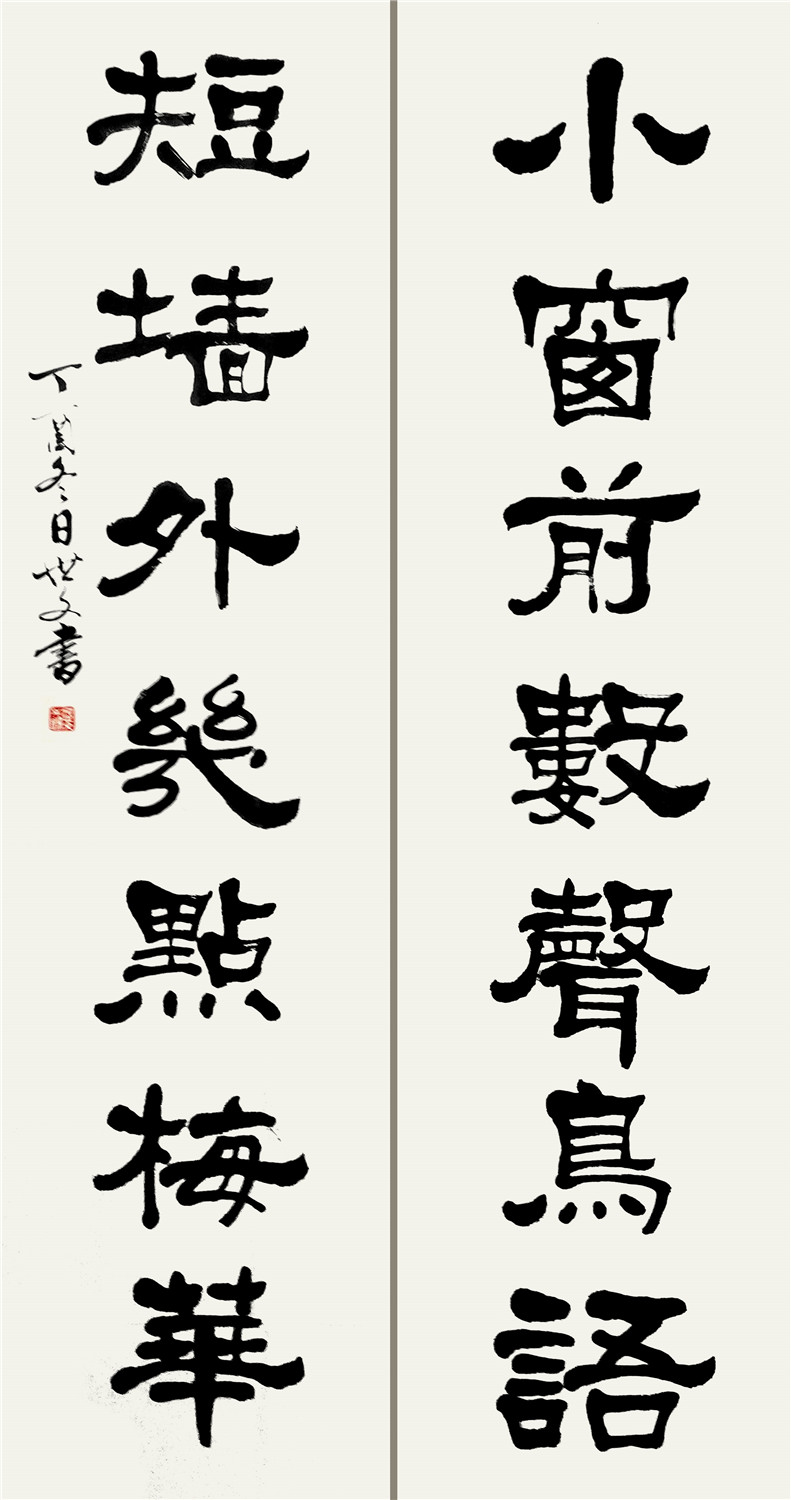 小窗前數聲鳥語
短墙外幾點梅華
丁亥冬日世文書